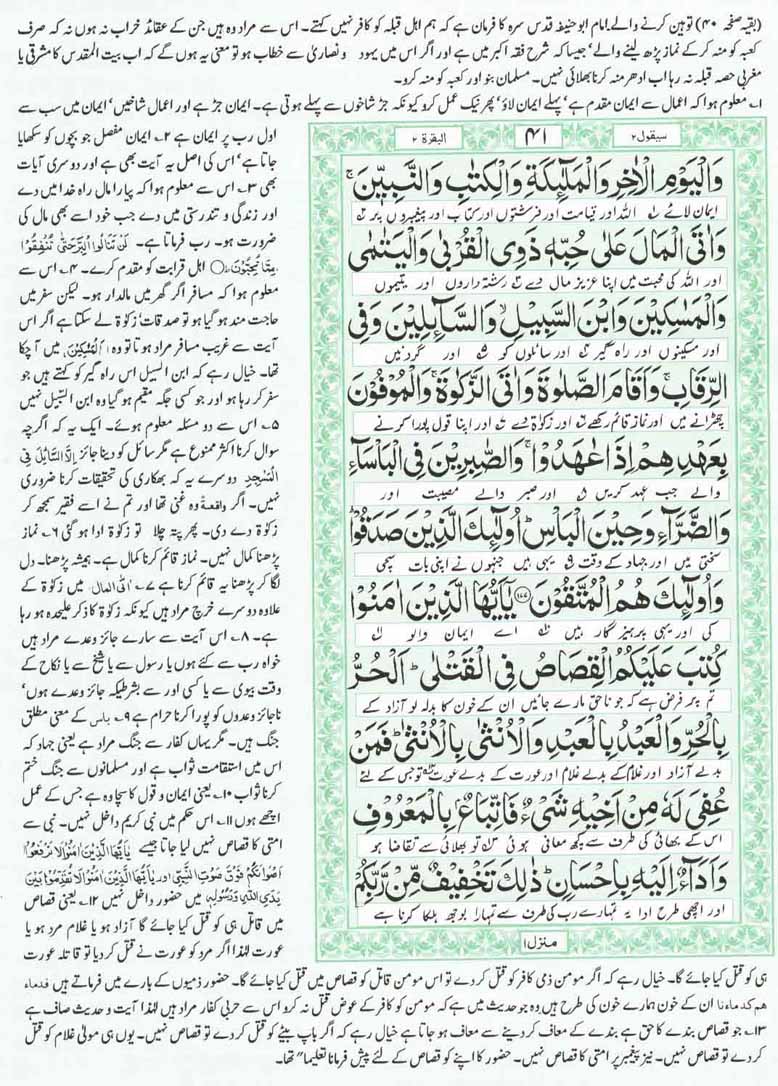 (بقیہ صفحہ ۴۰) توہین کرنے والے۔ امام ابو حنیفہ قدس سرہ کا فرمان ہے کہ ہم اہل قبلہ کو کافر نہیں کہتے۔ اس سے مراد وہ ہیں جن کے عقائد خراب نہ ہوں نہ کہ صرف
کعبہ کو منہ کر کے نماز پڑھ لینے والے' جیسا کہ شرح فقہ اکبر میں ہے اور اگر اس میں یہود و نصاریٰ سے خطاب ہو تو معنی یہ ہوں گے کہ اب بیت المقدس کا مشرقی یا
مغربی حصہ قبلہ نہ رہا اب ادھر منہ کرنا بھلائی نہیں۔ مسلمان بنو اور کعبہ کو منہ کرو۔
۱۔ معلوم ہوا کہ اعمال سے ایمان مقدم ہے' پہلے ایمان لاؤ' پھر نیک عمل کرو کیونکہ جڑ شاخوں سے پہلے ہوتی ہے۔ ایمان جڑ ہے اور اعمال شاخیں' ایمان میں سب سے
سیقول۲
۴۱
البقرۃ ۲
وَالْيَوْمِ الْاٰخِرِ وَالْمَلٰٓئِكَةِ وَالْكِتٰبِ وَالنَّبِيّٖنَ ۚ
ایمان لائے اللہ اور قیامت اور فرشتوں اور کتاب اور پیغمبروں پر
وَاٰتَى الْمَالَ عَلٰى حُبِّهٖ ذَوِي الْقُرْبٰى وَالْيَتٰمٰى
اور اللہ کی محبت میں اپنا عزیز مال دے رشتہ داروں اور یتیموں
وَالْمَسٰكِيْنَ وَابْنَ السَّبِيْلِ ۙ وَالسَّآئِلِيْنَ وَفِي
اور مسکینوں اور راہ گیر اور سائلوں کو اور گردنیں
الرِّقَابِ ۚ وَاَقَامَ الصَّلٰوةَ وَاٰتَى الزَّكٰوةَ ۚ وَالْمُوْفُوْنَ
چھڑانے میں اور نماز قائم رکھے اور زکوٰۃ دے اور اپنا قول پورا کرنے
بِعَهْدِهِمْ اِذَا عٰهَدُوْا ۚ وَالصّٰبِرِيْنَ فِي الْبَاْسَآءِ
والے جب عہد کریں اور صبر والے مصیبت اور
وَالضَّرَّآءِ وَحِيْنَ الْبَاْسِ ؕ اُولٰٓئِكَ الَّذِيْنَ صَدَقُوْا ؕ
سختی میں اور جہاد کے وقت یہی ہیں جنہوں نے اپنی بات سچی
وَاُولٰٓئِكَ هُمُ الْمُتَّقُوْنَ ۝۱۷۷ يٰٓاَيُّهَا الَّذِيْنَ اٰمَنُوْا
کی اور یہی پرہیزگار ہیں اے ایمان والو
كُتِبَ عَلَيْكُمُ الْقِصَاصُ فِي الْقَتْلٰى ؕ اَلْحُرُّ
تم پر فرض ہے کہ جو ناحق مارے جائیں ان کے خون کا بدلہ لو آزاد کے
بِالْحُرِّ وَالْعَبْدُ بِالْعَبْدِ وَالْاُنْثٰى بِالْاُنْثٰى ؕ فَمَنْ
بدلے آزاد اور غلام کے بدلے غلام اور عورت کے بدلے عورت تو جس کے لئے
عُفِيَ لَهٗ مِنْ اَخِيْهِ شَيْءٌ فَاتِّبَاعٌۢ بِالْمَعْرُوْفِ
اس کے بھائی کی طرف سے کچھ معافی ہوئی تو بھلائی سے تقاضا ہو
وَاَدَآءٌ اِلَيْهِ بِاِحْسَانٍ ؕ ذٰلِكَ تَخْفِيْفٌ مِّنْ رَّبِّكُمْ
اور اچھی طرح ادا یہ تمہارے رب کی طرف سے تمہارا بوجھ ہلکا کرنا ہے
منزل۱
اول رب پر ایمان ہے ۲۔ ایمان مفصل جو بچوں کو سکھایا
جاتا ہے' اس کی اصل یہ آیت بھی ہے اور دوسری آیات
بھی ۳۔ اس سے معلوم ہوا کہ پیارا مال راہ خدا میں دے
اور زندگی و تندرستی میں دے جب خود اسے بھی مال کی
ضرورت ہو۔ رب فرماتا ہے۔ لَنْ تَنَالُوا الْبِرَّ حَتّٰى تُنْفِقُوْا
مِمَّا تُحِبُّوْنَ اہل قرابت کو مقدم کرے۔ ۴۔ اس سے
معلوم ہوا کہ مسافر اگر گھر میں مالدار ہو۔ لیکن سفر میں
حاجت مند ہو گیا ہو تو صدقات' زکوٰۃ لے سکتا ہے اگر اس
آیت سے غریب مسافر مراد ہوتا تو وہ الْمَسٰكِيْنَ میں آ چکا
تھا۔ خیال رہے کہ ابن السبیل اس راہ گیر کو کہتے ہیں جو
سفر کر رہا ہو اور جو کسی جگہ مقیم ہو گیا وہ ابن السبیل نہیں
۵۔ اس سے دو مسئلہ معلوم ہوئے۔ ایک یہ کہ اگرچہ
سوال کرنا اکثر ممنوع ہے مگر سائل کو دینا جائز اِلَّا السَّائِلَ فِي
الْمَسْجِدِ دوسرے یہ کہ بھکاری کی تحقیقات کرنا ضروری
نہیں۔ اگر واقعۃً وہ غنی تھا اور تم نے اسے فقیر سمجھ کر
زکوٰۃ دے دی۔ پھر پتہ چلا تو زکوٰۃ ادا ہو گئی ۶۔ نماز
پڑھنا کمال نہیں۔ نماز قائم کرنا کمال ہے۔ ہمیشہ پڑھنا۔ دل
لگا کر پڑھنا یہ قائم کرنا ہے ۷۔ اٰتَى الْمَالَ میں زکوٰۃ کے
علاوہ دوسرے خرچ مراد ہیں کیونکہ زکوٰۃ کا ذکر علیحدہ ہو رہا
ہے۔ ۸۔ اس آیت سے سارے جائز وعدے مراد ہیں
خواہ رب سے کئے ہوں یا رسول سے یا شیخ سے یا نکاح کے
وقت بیوی سے یا کسی اور سے بشرطیکہ جائز وعدے ہوں'
ناجائز وعدوں کو پورا کرنا حرام ہے ۹۔ باس کے معنی مطلق
جنگ ہیں۔ مگر یہاں کفار سے جنگ مراد ہے یعنی جہاد کہ
اس میں استقامت ثواب ہے اور مسلمانوں سے جنگ ختم
کرنا ثواب ۱۰۔ یعنی ایمان و قول کا سچا وہ ہے جس کے عمل
اچھے ہوں ۱۱۔ اس حکم میں نبی کریم داخل نہیں۔ نبی سے
امتی کا قصاص نہیں لیا جاتا جیسے يٰٓاَيُّهَا الَّذِيْنَ اٰمَنُوْا لَا تَرْفَعُوْا
اَصْوَاتَكُمْ فَوْقَ صَوْتِ النَّبِيِّ اور يٰٓاَيُّهَا الَّذِيْنَ اٰمَنُوْا لَا تُقَدِّمُوْا بَيْنَ
يَدَيِ اللّٰهِ وَرَسُوْلِهٖ میں حضور داخل نہیں ۱۲۔ یعنی قصاص
میں قاتل ہی کو قتل کیا جائے گا آزاد ہو یا غلام مرد ہو یا
عورت لہٰذا اگر مرد کو عورت نے قتل کر دیا تو قاتلہ عورت
ہی کو قتل کیا جائے گا۔ خیال رہے کہ اگر مومن ذمی کافر کو قتل کر دے تو اس مومن قاتل کو قصاص میں قتل کیا جائے گا۔ حضور ذمیوں کے بارے میں فرماتے ہیں فدماء
هم كدماءنا ان کے خون ہمارے خون کی طرح ہیں وہ جو حدیث میں ہے کہ مومن کو کافر کے عوض قتل نہ کرو اس سے حربی کفار مراد ہیں لہٰذا آیت و حدیث صاف ہے
۱۳۔ جو قصاص بندے کا حق ہے بندے کے معاف کر دینے سے معاف ہو جاتا ہے خیال رہے کہ اگر باپ بیٹے کو قتل کر دے تو قصاص نہیں۔ یوں ہی مولیٰ غلام کو قتل
کر دے تو قصاص نہیں۔ نیز پیغمبر پر امتی کا قصاص نہیں۔ حضور کا اپنے کو قصاص کے لئے پیش فرمانا تعلیما" تھا۔